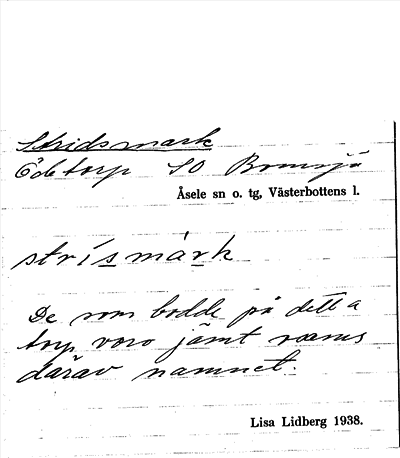 Stridsmark
Ödetorp SO Bomsjö
Åsele sn o. tg, Västerbottens l.
strísmárk
De som bodde på detta
torp voro jämt
därav namnet.
Lisa Lidberg 1938.